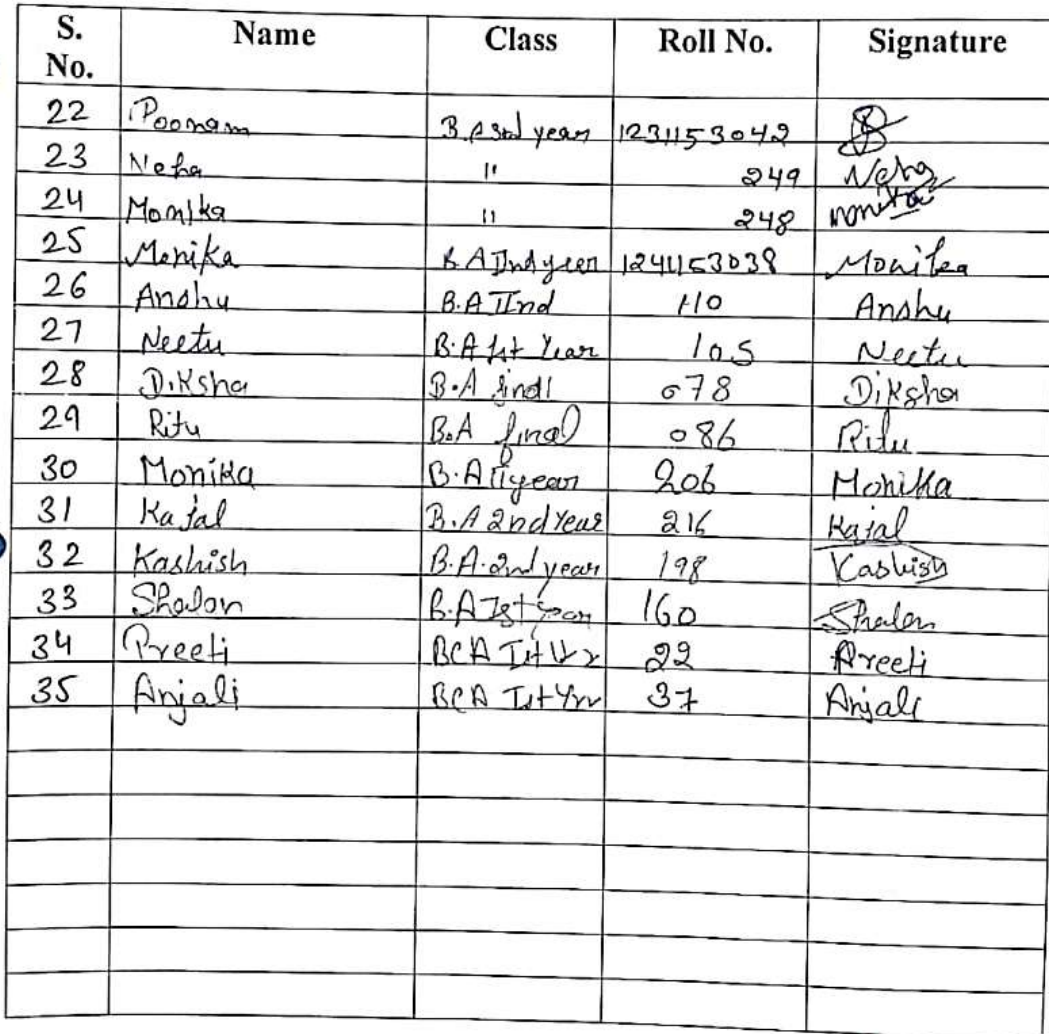 S. No. Name Class Roll No. Signature
22 Poonam B.A 3rd year 1231153042
23 Neha " 249 Neha
24 Monika " 248 monika
25 Monika B.A IInd year 1241153038 Monika
26 Anshu B.A IInd 110 Anshu
27 Neetu B.A 1st Year 105 Neetu
28 Diksha B.A final 078 Diksha
29 Ritu B.A final 086 Ritu
30 Monika B.A II year 206 Monika
31 Kajal B.A 2nd Year 216 Kajal
32 Kashish B.A. 2nd year 198 Kashish
33 Shalon B.A Ist year 160 Shalon
34 Preeti BCA Ist Yr 22 Preeti
35 Anjali BCA Ist Yr 37 Anjali